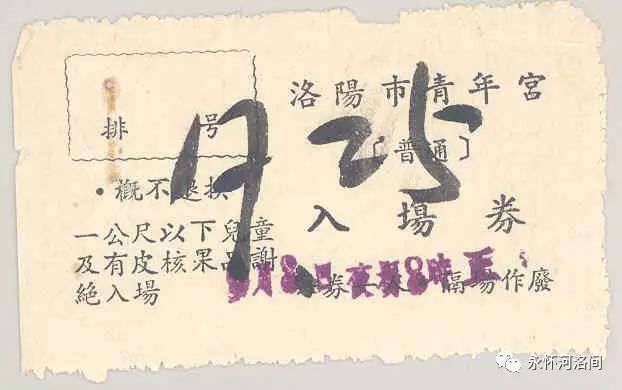 洛陽市青年宮
〔普通〕
入場券
排 号
25
·概不退换
一公尺以下兒童
及有皮核果品謝
絕入場
月8日夜場8時正
券一 隔場作廢
永怀河洛间